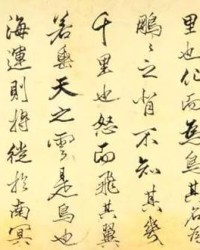 里也化而為鳥其名為
鵬々之背不知其幾
千里也怒而飛其翼
若垂天之雲是鳥也
海運則將徙於南冥